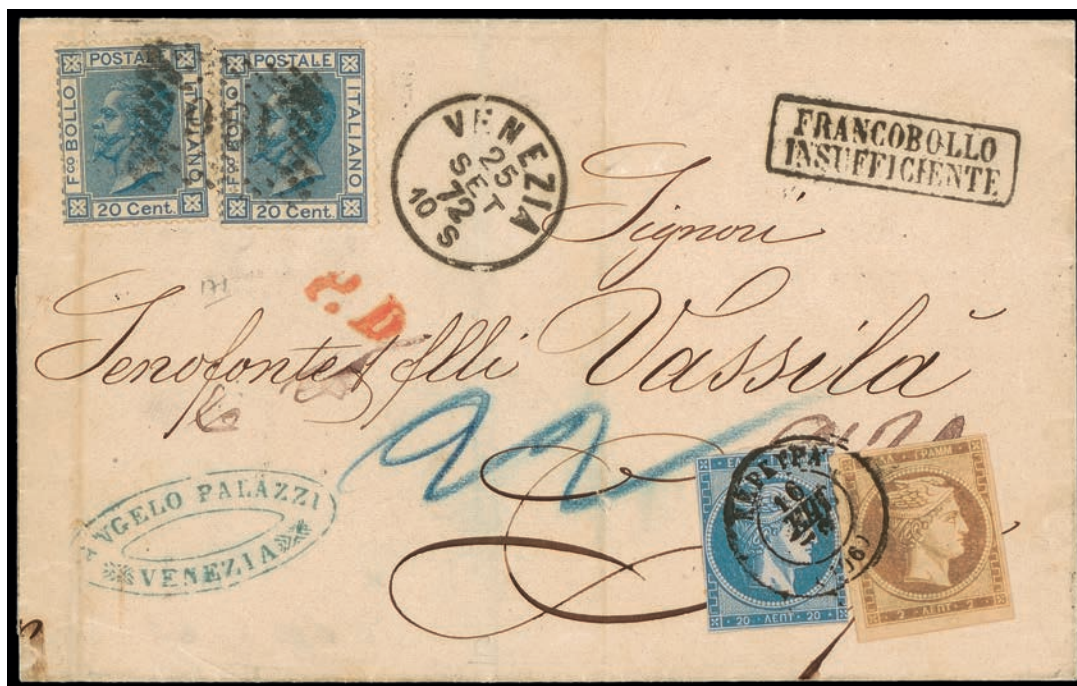 POSTALE
Fco BOLLO
ITALIANO
20 Cent.
POSTALE
Fco BOLLO
ITALIANO
20 Cent.
VENEZIA
25
SET
72
10 S
FRANCOBOLLO
INSUFFICIENTE
Signori
P.D
Senofonte & flli Vassilà
ANGELO PALAZZI
VENEZIA
ΚΕΡΚΥΡΑ
16
20 ΛΕΠΤ 20
ΓΡΑΜΜ
2 ΛΕΠΤ 2